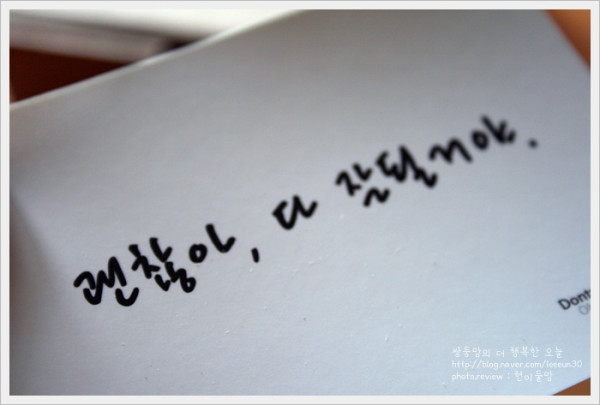 괜찮아, 다 잘될거야.
Dont
쌍둥맘의 더 행복한 오늘
http://blog.naver.com/leeeun30
photo,review : 현이둘맘